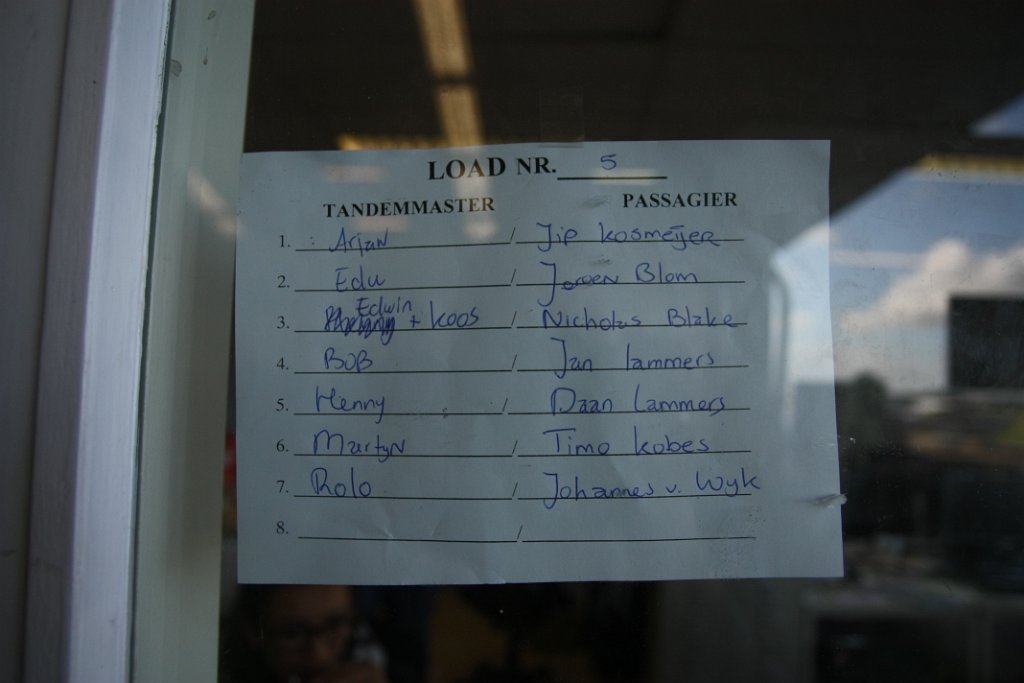 LOAD NR. 5
TANDEMMASTER PASSAGIER
1. Arjan / Jip Kosmeijer
2. Edu / Jeroen Blom
3. Edwin + Koos / Nicholas Blake
4. BOB / Jan Lammers
5. Henny / Daan Lammers
6. Martyn / Timo Kobes
7. Rolo / Johannes v. Wyk
8. /